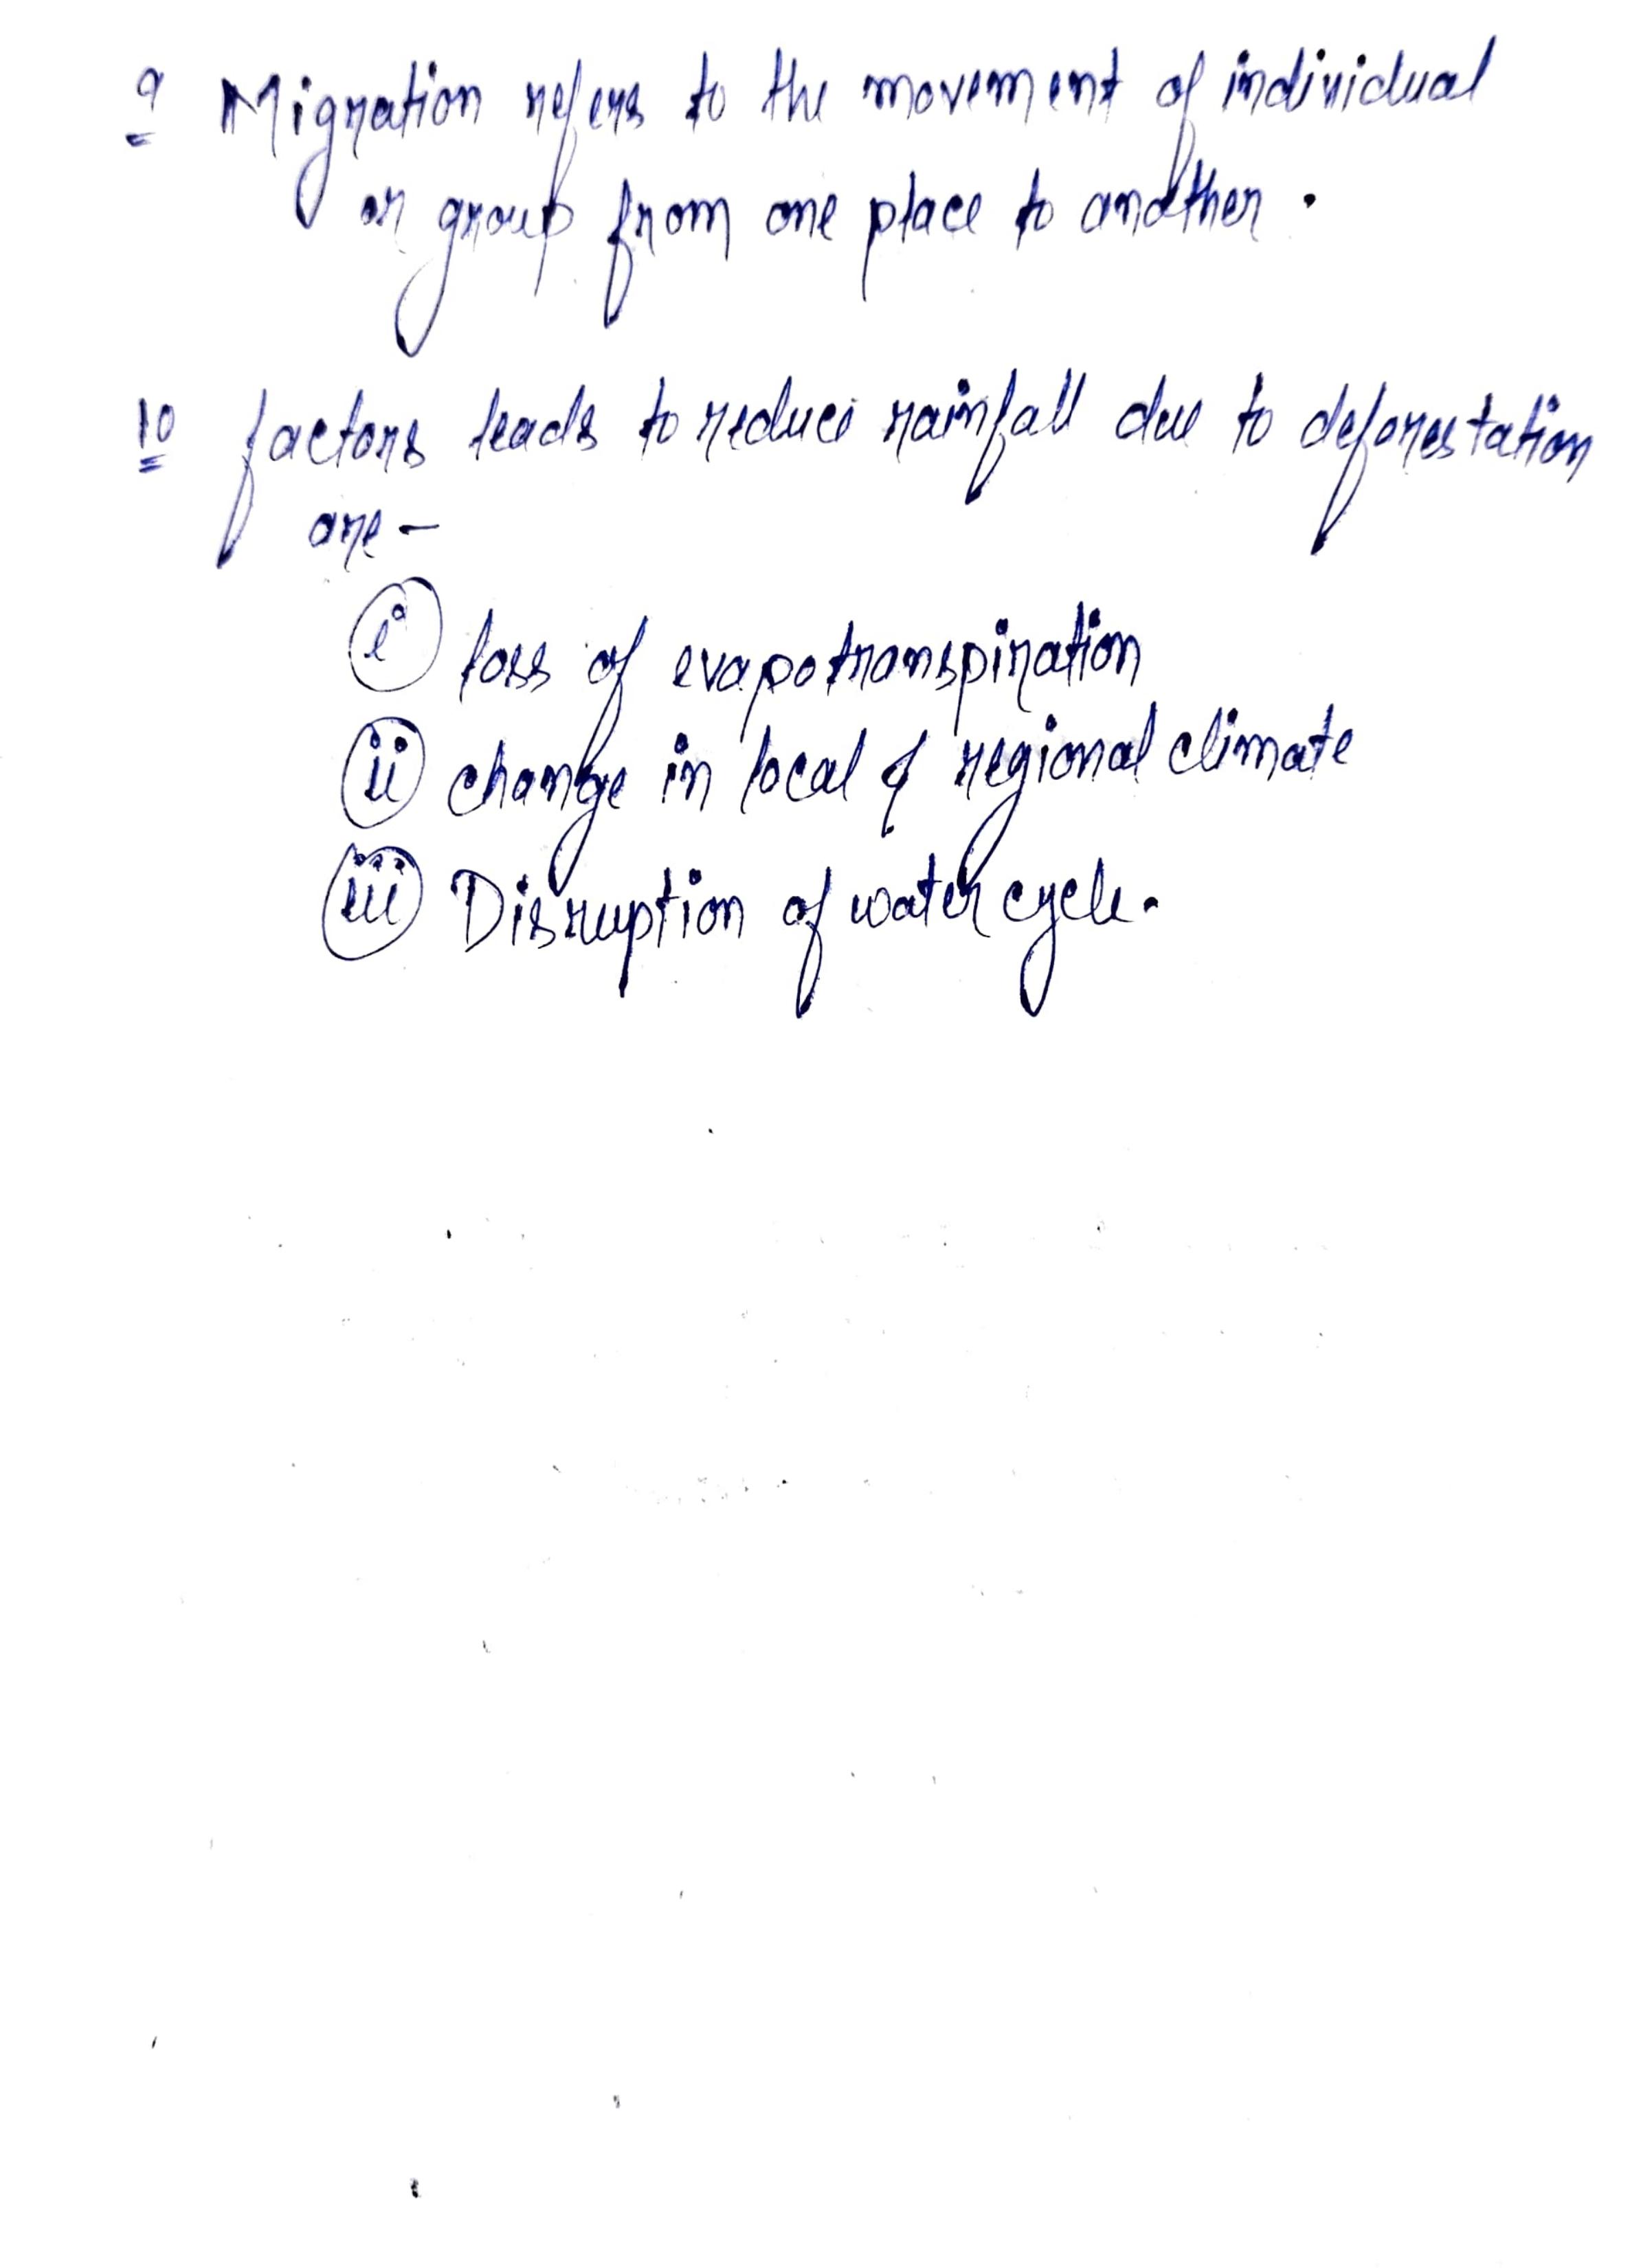 9 Migration refers to the movement of individual
or group from one place to another.
10 factors leads to reduce rainfall due to deforestation
are -
(i) loss of evapotranspiration
(ii) change in local & regional climate
(iii) Disruption of water cycle.